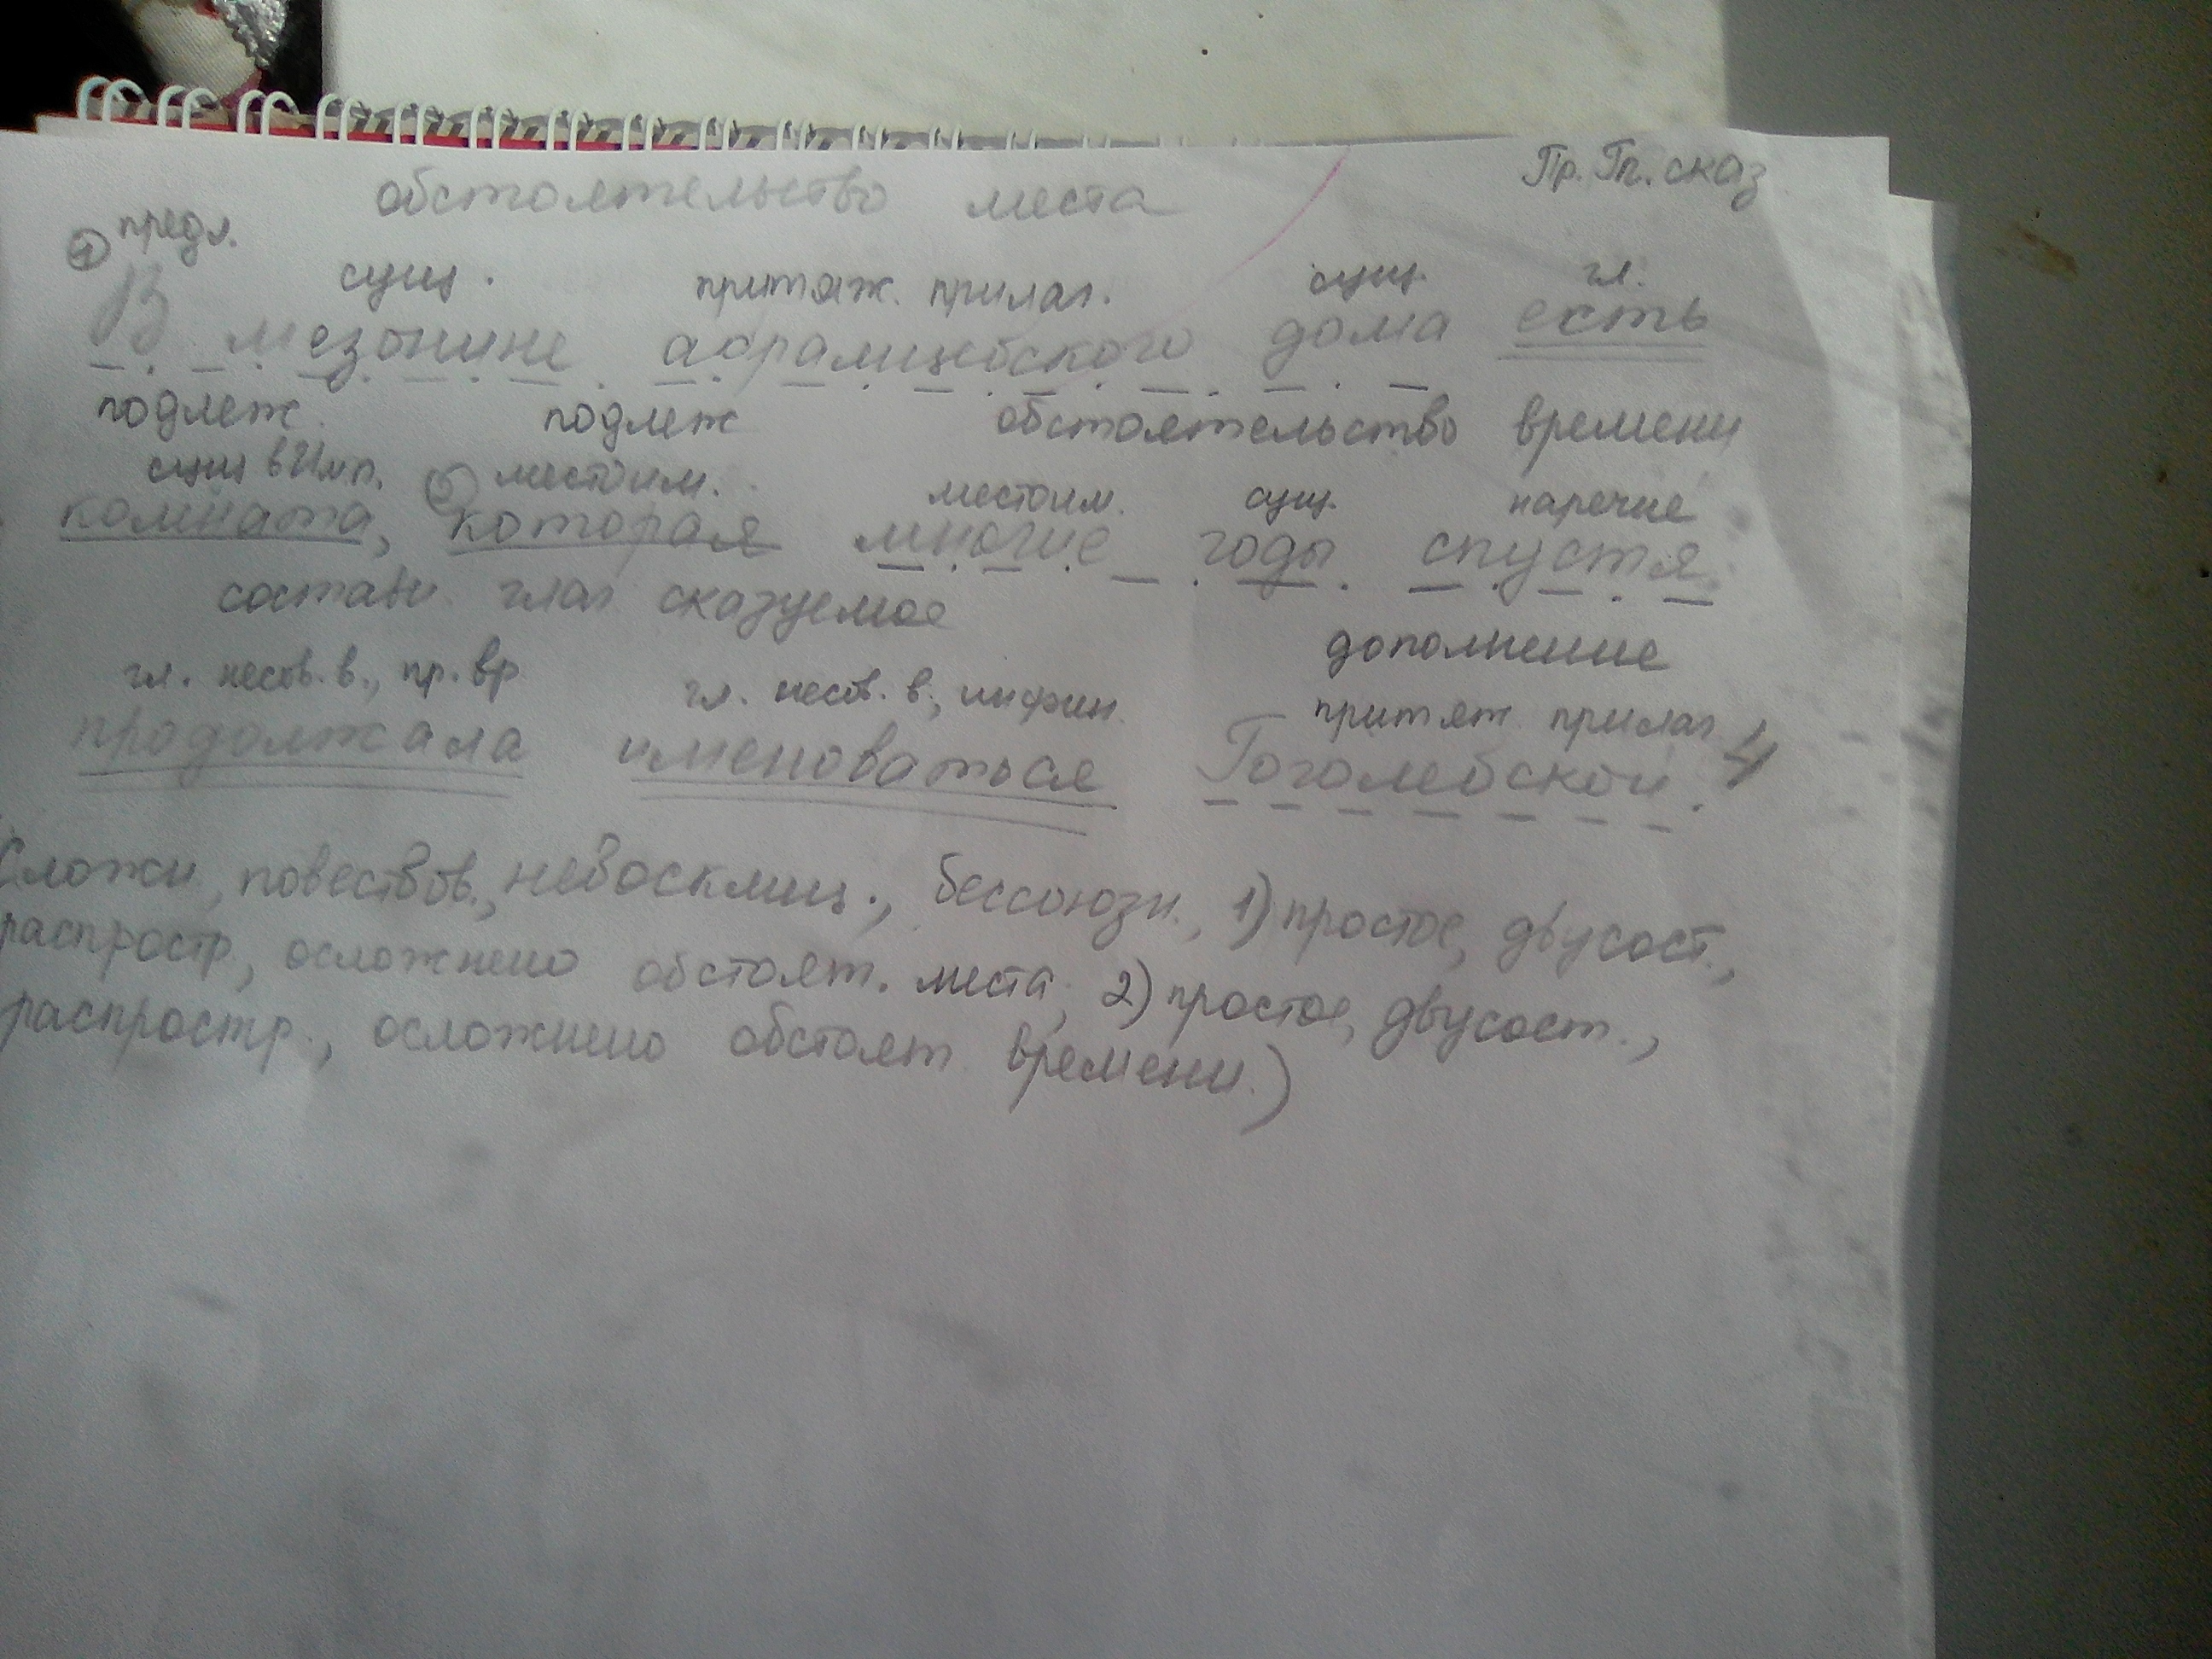 обстоятельство места Пр. Гл. сказ
① предл. сущ. притяж. прилаг. сущ. гл.
В мезонине абрамцевского дома есть
подлеж. подлеж обстоятельство времени
сущ в Им п. ② местоим. местоим. сущ. наречие
комната, которая многие годы спустя
составн. глаг сказуемое дополнение
гл. несов. в., пр. вр гл. несов. в., инфин. притяж. прилаг.
продолжала именоваться Гоголевской.
Сложн., повествов., невосклиц., бессоюзн., 1) простое, двусост.,
распростр., осложнено обстоят. места, 2) простое, двусост.,
распростр., осложнено обстоят. времени.)